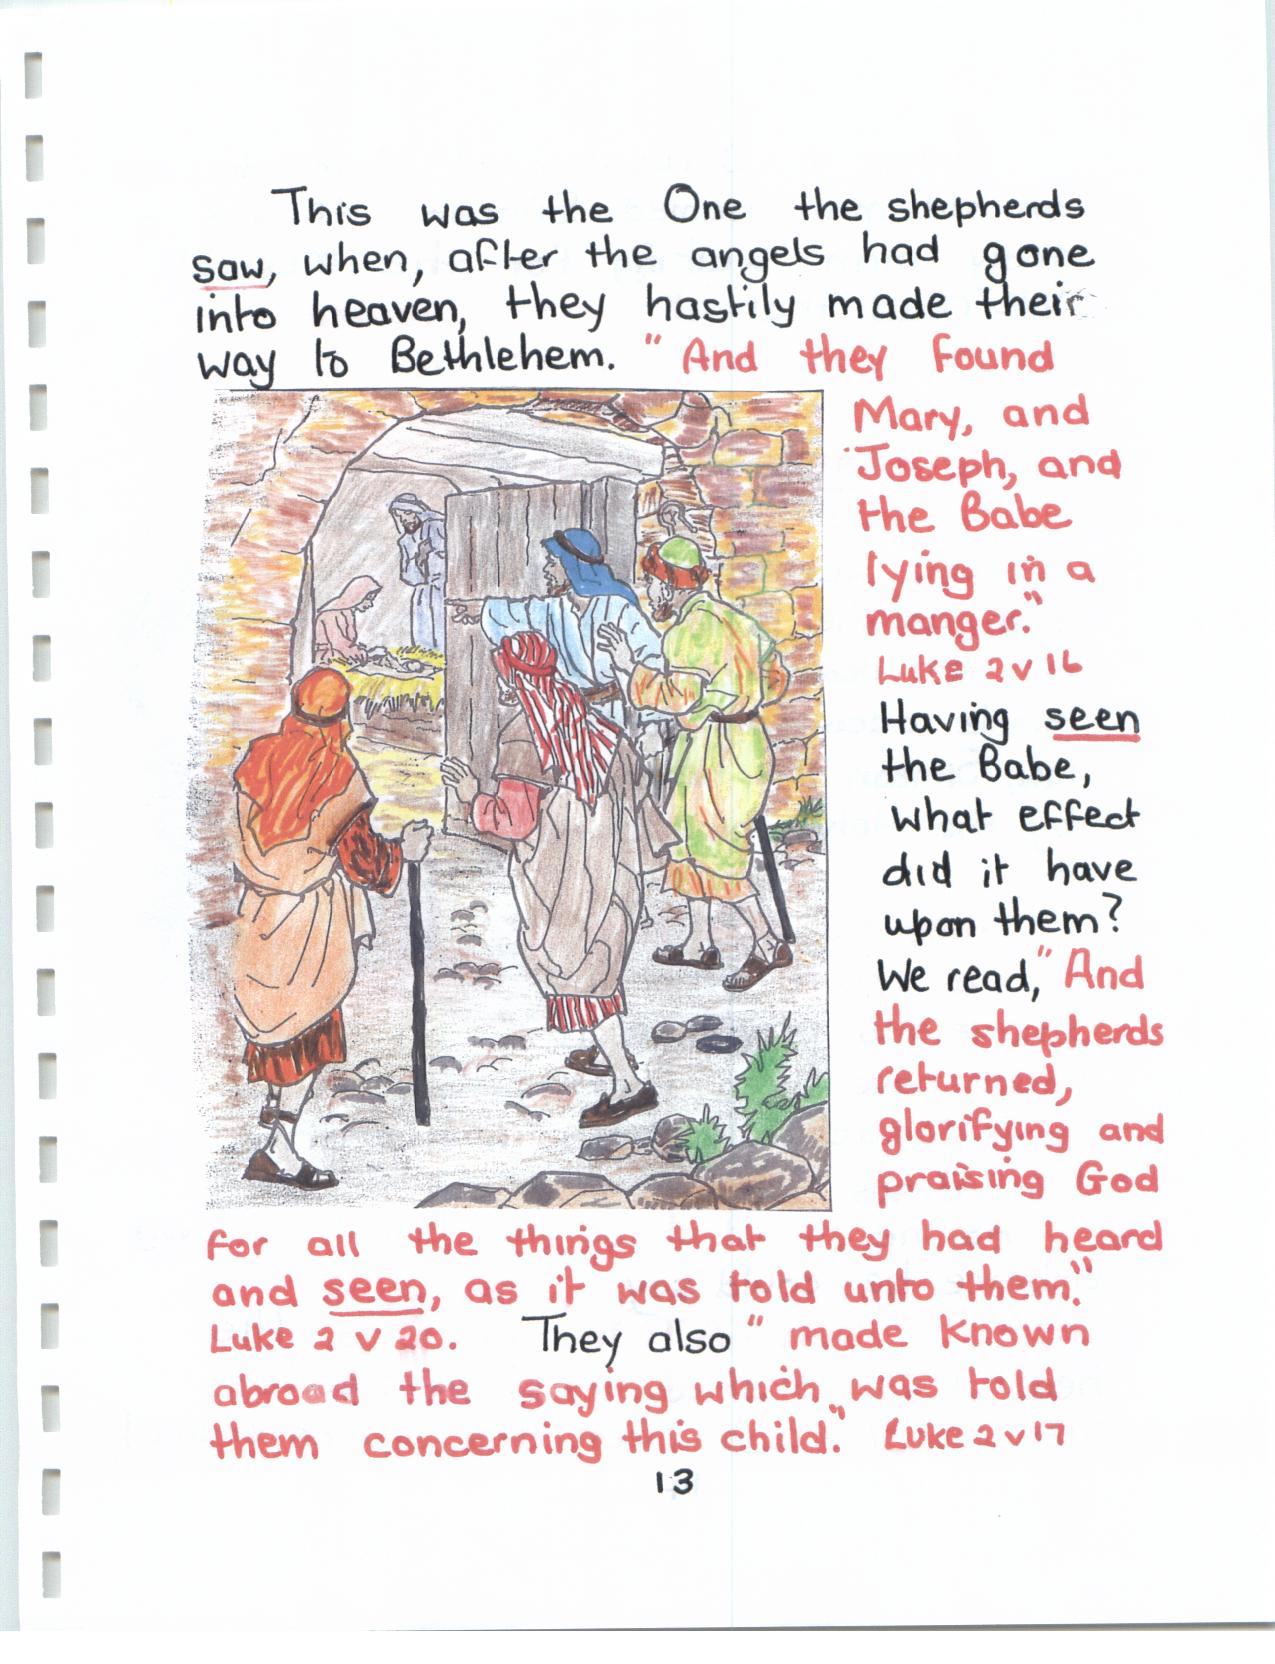 This was the One the shepherds
saw, when, after the angels had gone
into heaven, they hastily made their
way to Bethlehem. "And they found
Mary, and
Joseph, and
the Babe
lying in a
manger."
Luke 2 v 16
Having seen
the Babe,
what effect
did it have
upon them?
We read, "And
the shepherds
returned,
glorifying and
praising God
for all the things that they had heard
and seen, as it was told unto them."
Luke 2 v 20. They also "made known
abroad the saying which was told
them concerning this child." Luke 2 v 17
13